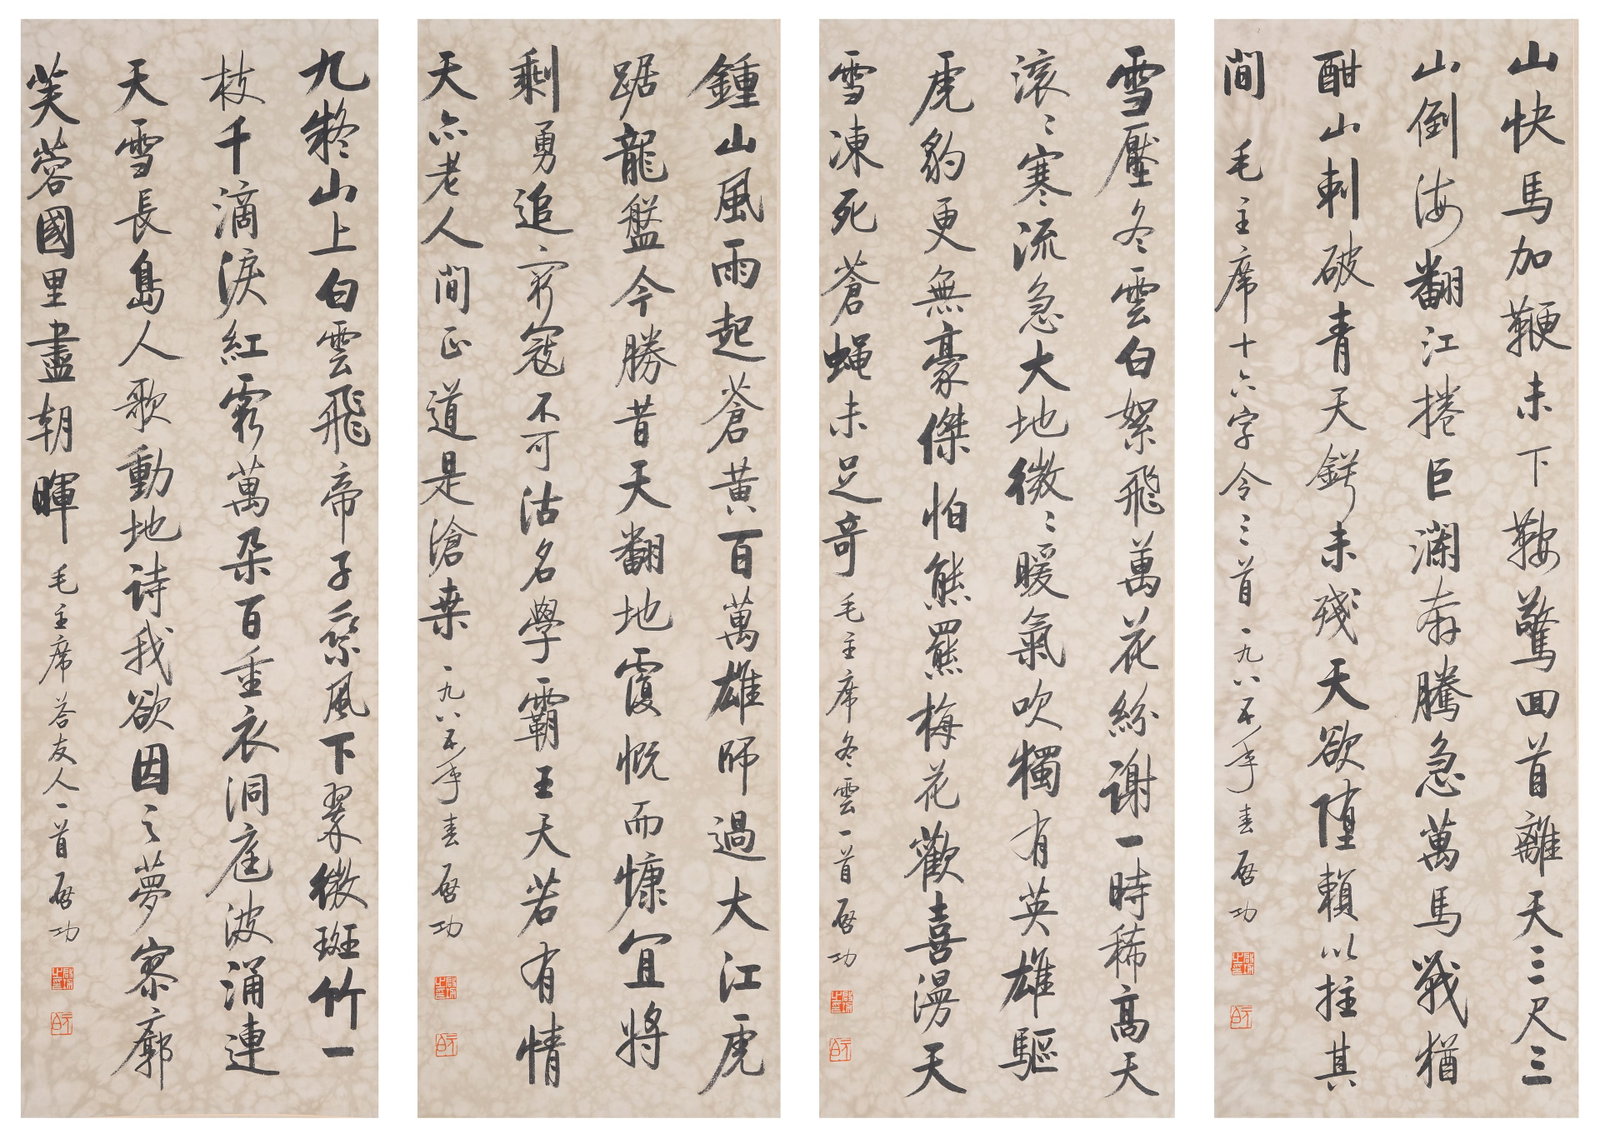 山快馬加鞭未下鞍驚回首離天三尺三
山倒海翻江捲巨瀾奔騰急萬馬戰猶
酣山刺破青天鍔未殘天欲墮賴以拄其
間 毛主席十六字令三首 一九八五年春 啓功
啓功之印
元白
雪壓冬雲白絮飛萬花紛謝一時稀高天
滚〻寒流急大地微〻暖氣吹獨有英雄驅
虎豹更無豪傑怕熊羆梅花歡喜漫天
雪凍死蒼蠅未足奇 毛主席冬雲一首 啓功
啓功之印
元白
鍾山風雨起蒼黃百萬雄師過大江虎
踞龍盤今勝昔天翻地覆慨而慷宜將
剩勇追窮寇不可沽名學霸王天若有情
天亦老人間正道是滄桑 一九八五年春 啓功
啓功之印
元白
九嶷山上白雲飛帝子乘風下翠微斑竹一
枝千滴淚紅霞萬朵百重衣洞庭波涌連
天雪長島人歌動地詩我欲因之夢寥廓
芙蓉國里盡朝暉 毛主席答友人一首 啓功
啓功之印
元白